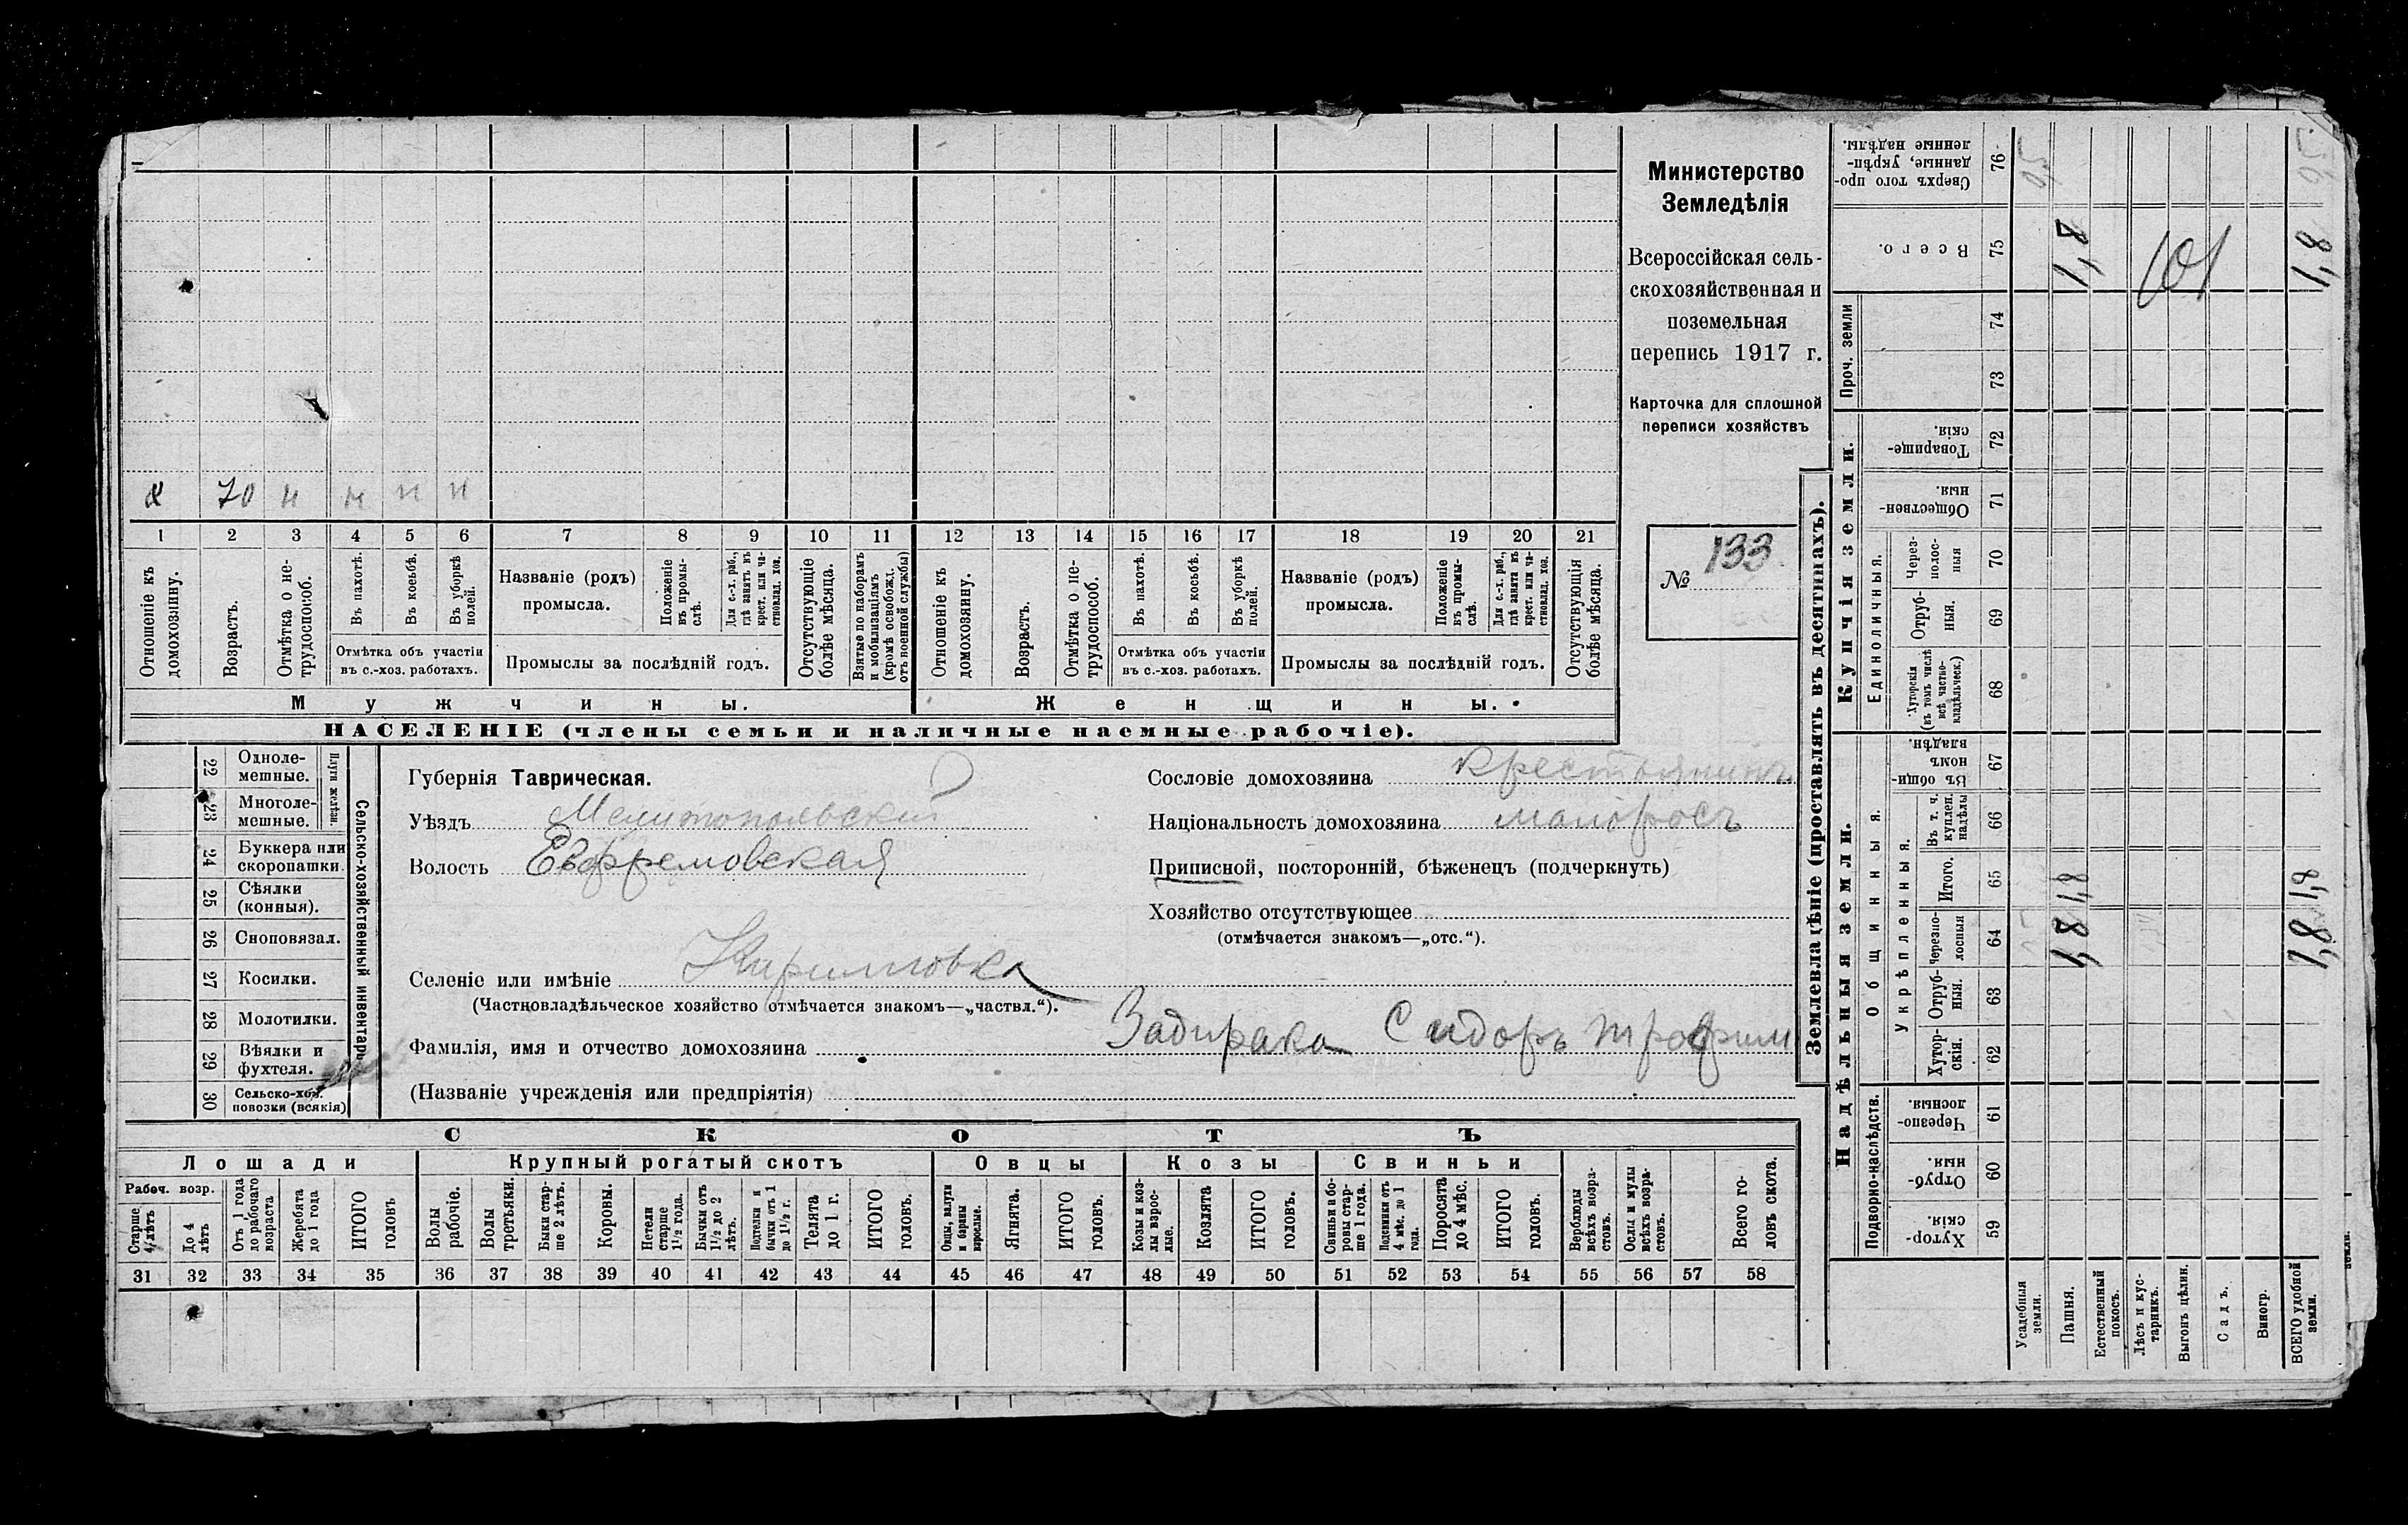 х 70 н н н н
1 2 3 4 5 6 7 8 9 10 11 12 13 14 15 16 17 18 19 20 21
Отношеніе къ домохозяину.
Возрастъ.
Отмѣтка о нетрудоспособ.
Въ пахотѣ.
Въ косьбѣ.
Въ уборкѣ полей.
Отмѣтка объ участіи
въ с.-хоз. работахъ.
Названіе (родъ)
промысла.
Положеніе въ промыслѣ.
Для с.-х. раб., гдѣ занятъ въ крест. или частновлад. хоз.
Промыслы за послѣдній годъ.
Отсутствующіе болѣе мѣсяца.
Взятые по наборамъ и мобилизаціямъ (кромѣ освобожд. отъ военной службы)
Отношеніе къ домохозяину.
Возрастъ.
Отмѣтка о нетрудоспособ.
Въ пахотѣ.
Въ косьбѣ.
Въ уборкѣ полей.
Отмѣтка объ участіи
въ с.-хоз. работахъ.
Названіе (родъ)
промысла.
Положеніе въ промыслѣ.
Для с.-х. раб., гдѣ занята въ крест. или частновлад. хоз.
Промыслы за послѣдній годъ.
Отсутствующія болѣе мѣсяца.
Мужчины. Женщины.
НАСЕЛЕНІЕ (члены семьи и наличные наемные рабочіе).
Министерство
Земледѣлія
Всероссійская сель-
скохозяйственная и
поземельная
перепись 1917 г.
Карточка для сплошной
переписи хозяйствъ
№ 133
22 Одноле-
мешные.
23 Многоле-
мешные.
Плуги желѣзн.
24 Буккера или
скоропашки
25 Сѣялки
(конныя).
26 Сноповязал.
27 Косилки.
28 Молотилки.
29 Вѣялки и
фухтеля.
30 Сельско-хоз.
повозки (всякія)
Сельско-хозяйственный инвентарь
Губернія Таврическая.
Уѣздъ Мелитопольскій
Волость Ефремовская
Селеніе или имѣніе Кирилловка
(Частновладѣльческое хозяйство отмѣчается знакомъ—„частвл.“).
Фамилія, имя и отчество домохозяина Задирака Сидоръ Трофим
(Названіе учрежденія или предпріятія)
Сословіе домохозяина крестьянинъ
Національность домохозяина малоросъ
Приписной, посторонній, бѣженецъ (подчеркнуть)
Хозяйство отсутствующее
(отмѣчается знакомъ—„отс.“).
СКОТЪ
Лошади Крупный рогатый скотъ Овцы Козы Свиньи
Рабоч. возр.
Старше 4 лѣтъ
До 4 лѣтъ
Отъ 1 года до рабочаго возраста
Жеребята до 1 года
ИТОГО головъ
Волы рабочіе.
Волы третьяки.
Быки старше 2 лѣтъ.
Коровы.
Нетели старше 1½ года.
Бычки отъ 1½ до 2 лѣтъ.
Подтелки и бычки отъ 1 до 1½ г.
Телята до 1 г.
ИТОГО головъ.
Овцы, валухи и бараны взрослые.
Ягнята.
ИТОГО головъ.
Козы и козлы взрослые.
Козлята
ИТОГО головъ.
Свиньи и боровы старше 1 года.
Подсвинки отъ 4 мѣс. до 1 года.
Поросята до 4 мѣс.
ИТОГО головъ.
Верблюды всѣхъ возрастовъ.
Ослы и мулы всѣхъ возрастовъ.
Всего головъ скота.
31 32 33 34 35 36 37 38 39 40 41 42 43 44 45 46 47 48 49 50 51 52 53 54 55 56 57 58
Землевладѣніе (проставлять въ десятинахъ).
Надѣльныя земли. Купчія земли. Проч. земли
Подворно-наслѣдств. Общинныя. Единоличныя.
Укрѣпленныя.
Хуторскія. 59
Отрубныя. 60
Черезполосныя. 61
Хуторскія. 62
Отрубныя. 63
Черезполосныя 64
Итого. 65
Въ т. ч. куплен. надѣлы 66
Въ общинномъ владѣн. 67
Хуторскія (въ томъ числѣ всѣ частновладѣльческ.) 68
Отрубныя. 69
Черезполосныя 70
Общественныя. 71
Товарищескія. 72
73
74
Всего. 75
Сверхъ того проданные, укрѣпленные надѣлы. 76
Усадебныя земли.
Пашня. 1,8 1,8 1,8
Естественный покосъ.
Лѣсъ и кустарникъ. 101
Выгонъ цѣлин.
Садъ.
Виногр.
ВСЕГО удобной земли. 1,8 1,8 1,8